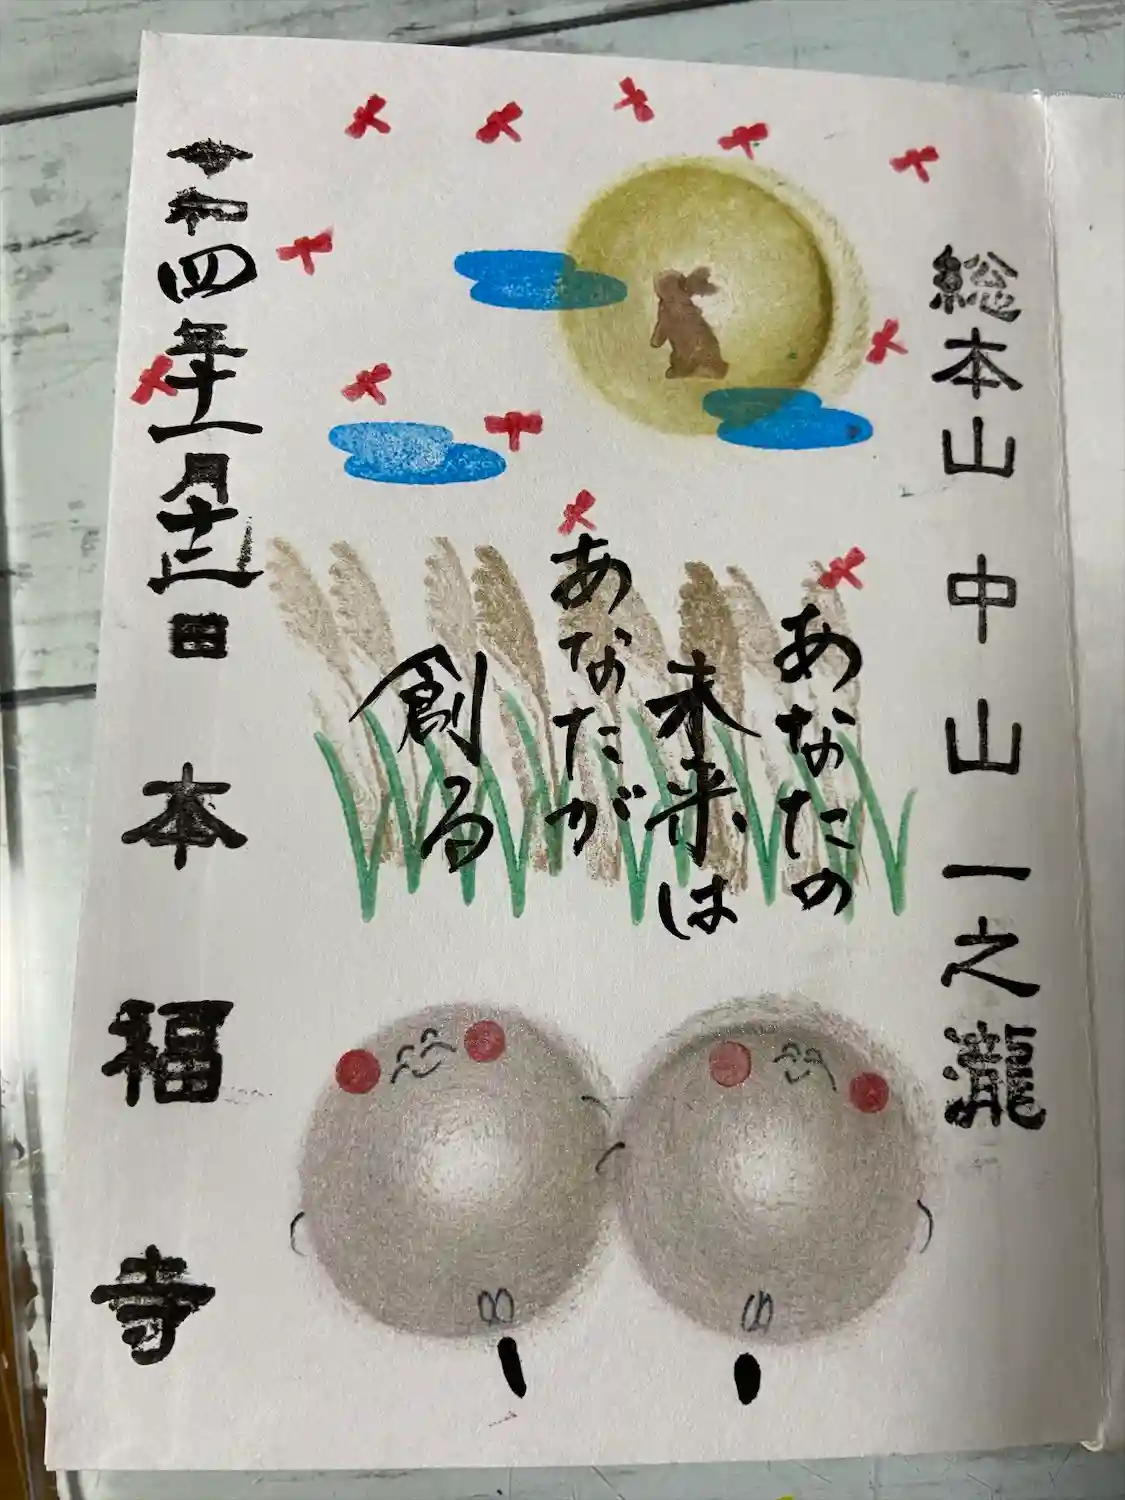 総本山 中山一之瀧
あなたの
未来は
あなたが
創る
令和四年十一月十二日 本福寺